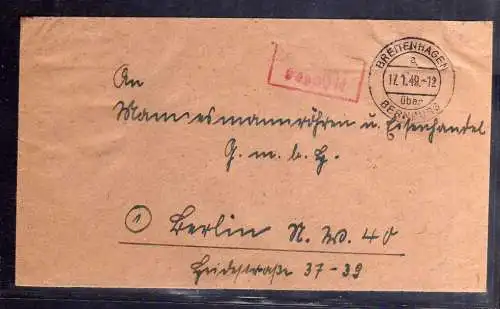 BREITENHAGEN
a
17.1.49.-12
über
BERNBURG
An
Mannesmannröhren u. Eisenhandel
G. m. b. H.
1 Berlin N. W. 40
Heidestraße 37-39